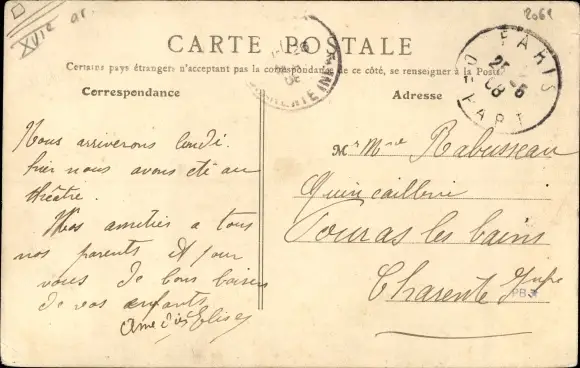 XVIe ar.
2061
CARTE POSTALE
Certains pays étrangers n'acceptant pas la correspondance de ce côté, se renseigner à la Poste
Correspondance
Adresse
PARIS
DEPART
25 -6
08
Nous arriverons lundi.
hier nous avons été au
théâtre.
Nos amitiés a tous
nos parents et pour
vous de bons baisers
de vos enfants
Elise
Mr Mme Rabusseau
Quincaillerie
Fouras les bains
Charente Infre
PB